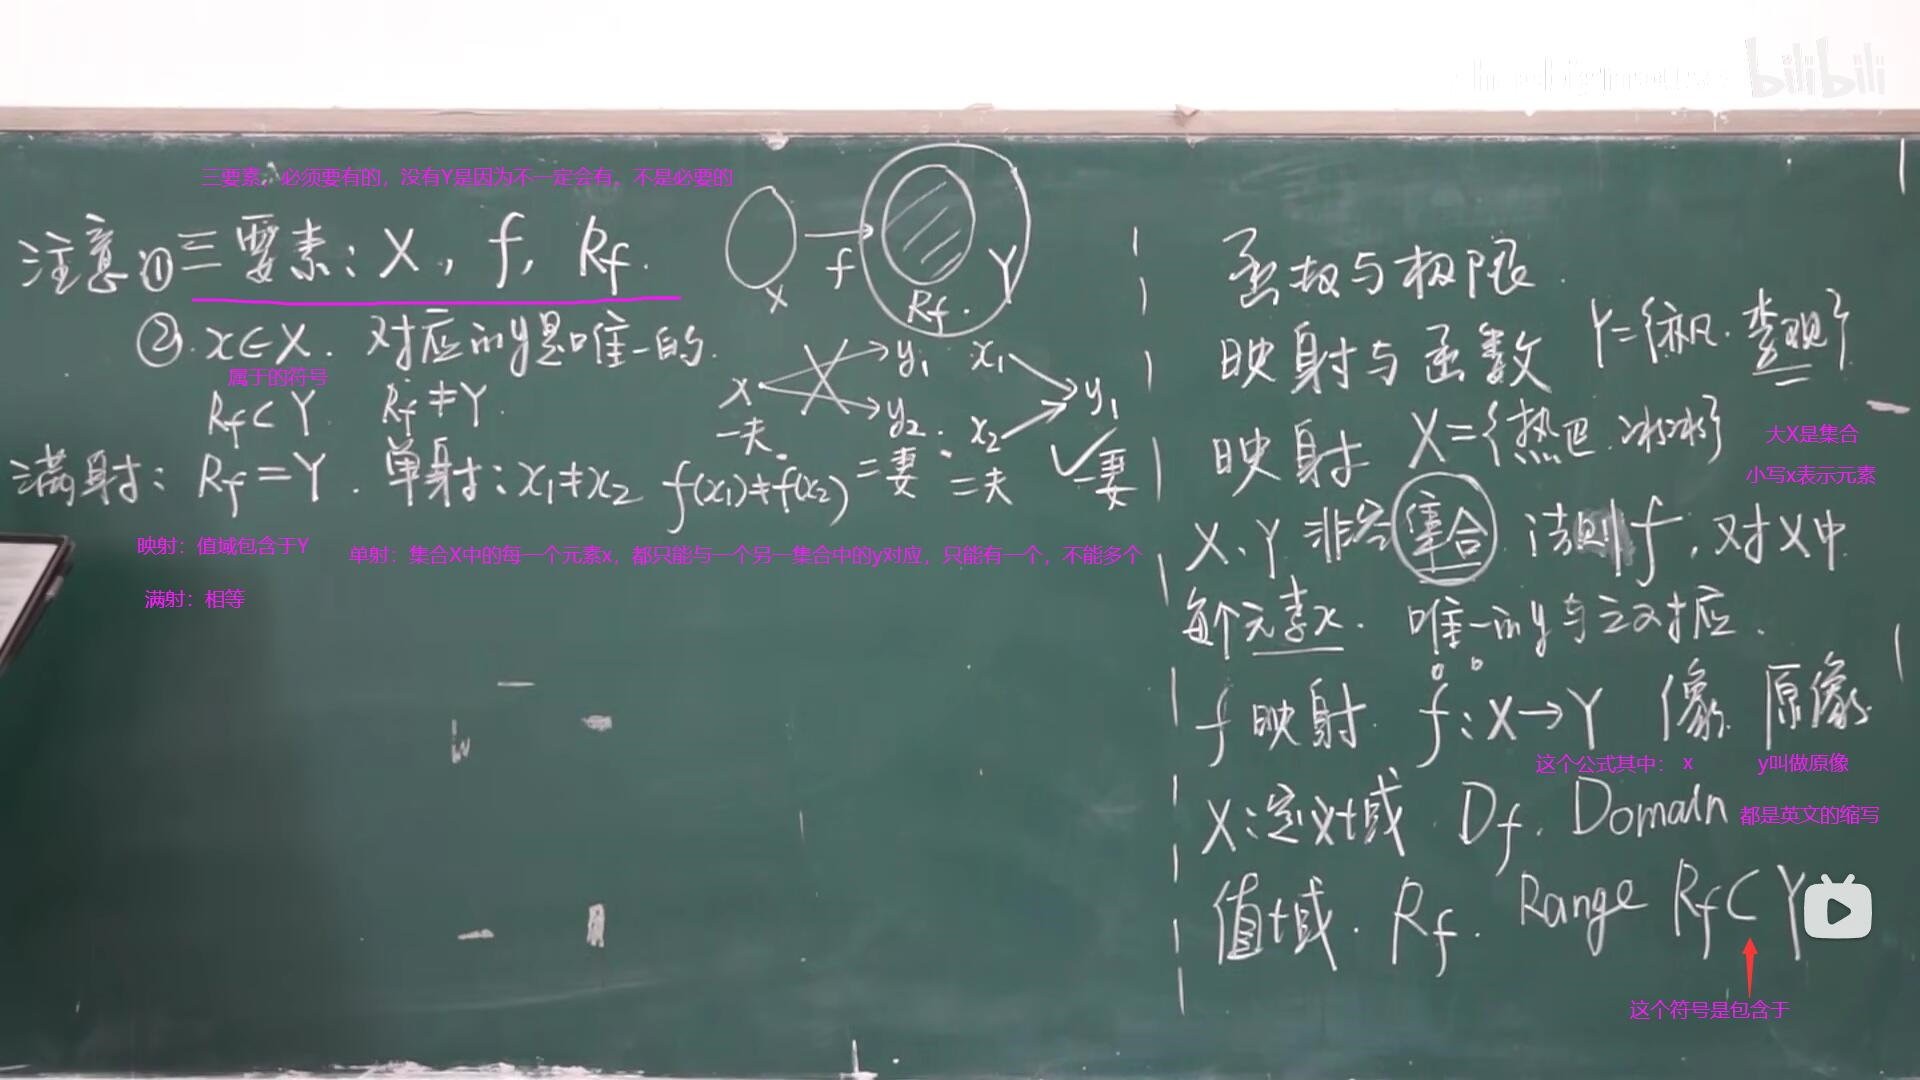 bilibili
三要素：必须要有的，没有Y是因为不一定会有，不是必要的
注意①三要素：X，f，Rf.
②. x∈X. 对应的y是唯一的.
属于的符号
Rf⊂Y Rf≠Y.
满射：Rf=Y. 单射：x1≠x2 f(x1)≠f(x2)
映射：值域包含于Y
单射：集合X中的每一个元素x，都只能与一个另一集合中的y对应，只能有一个，不能多个
满射：相等
X f Rf. Y
x y1 y2.
一夫. 二妻.
x1 x2 y1
二夫 一妻
函数与极限.
映射与函数
映射 X={热巴.冰冰}
大X是集合
小写x表示元素
X、Y 非空集合. 法则f，对X中
每个元素x. 唯一的y与之对应.
f映射. f:X→Y 像. 原像.
这个公式其中： x y叫做原像
X:定义域. Df. Domain
都是英文的缩写
值域. Rf. Range Rf⊂Y
这个符号是包含于